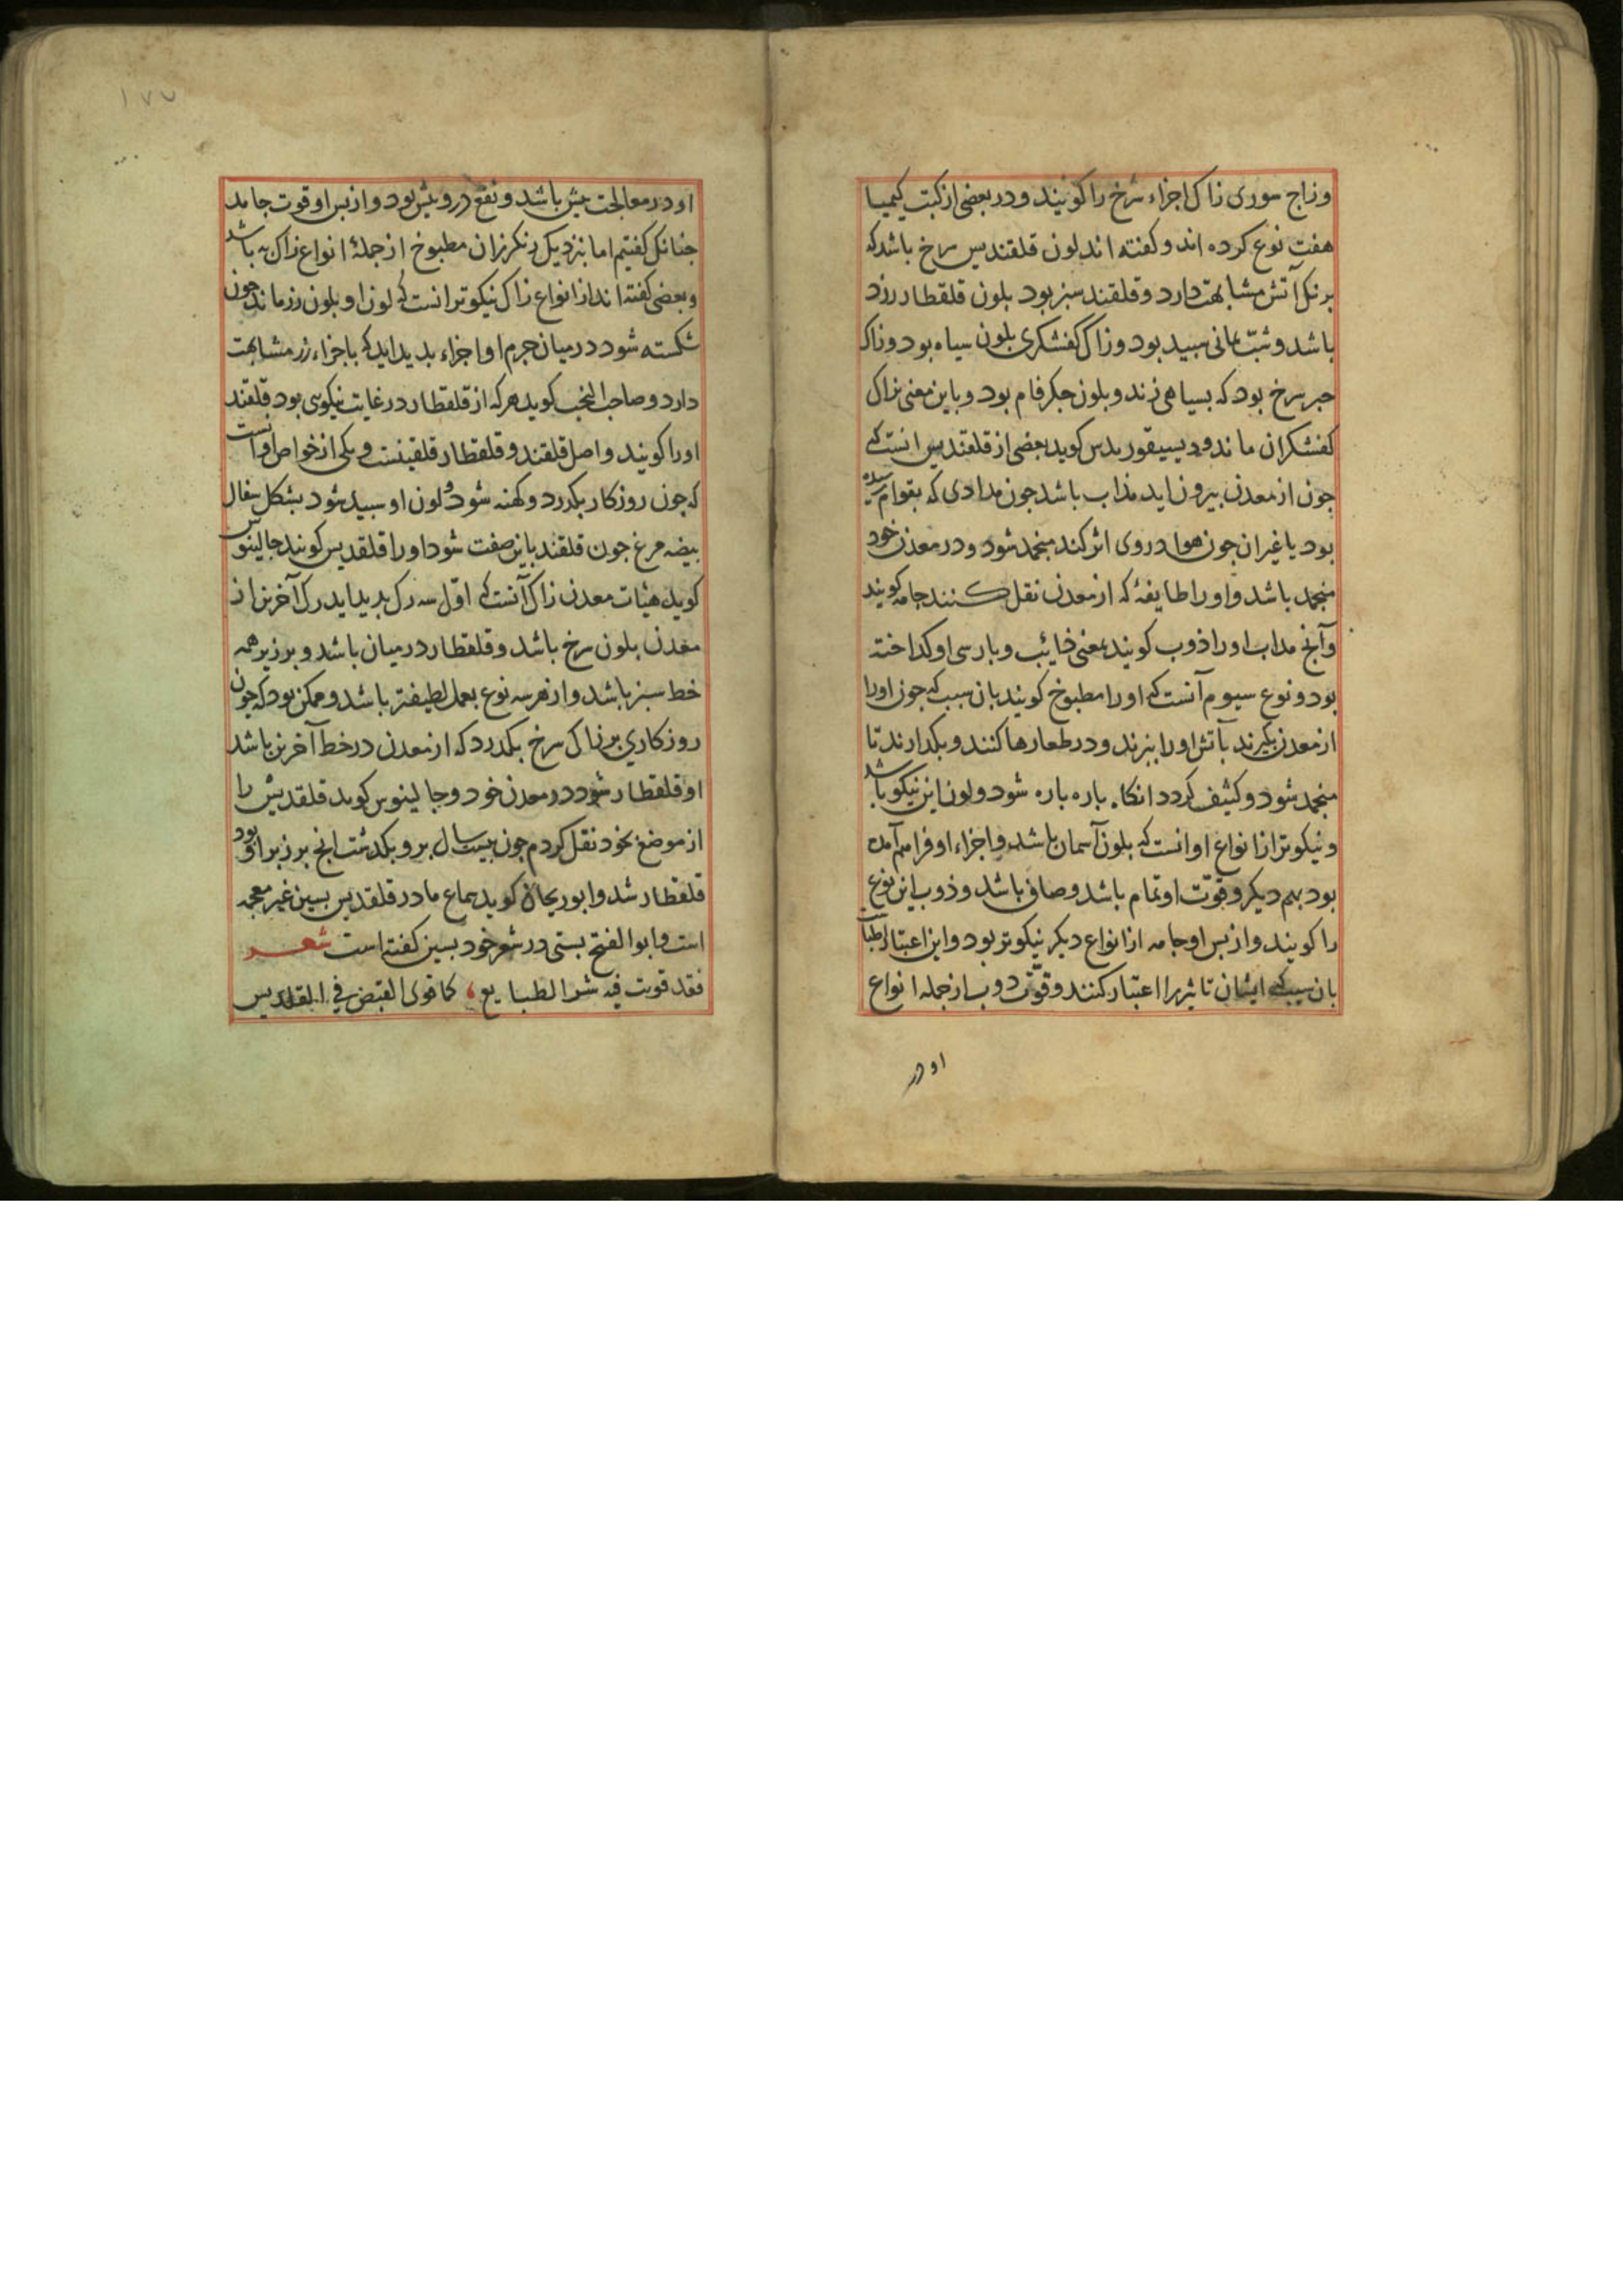 وزاج سوری زاک اجزاء سرخ را کویند ودر بعضی از کتب کیمیا
هفت نوع کرده اند و کفته اند لون قلقندیس سرخ باشد که
برنک آتش مشابهت دارد و قلقند سبز بود بلون قلقطار زرد
باشد وشبّ یمانی سپید بود وزاک کفشکری بلون سیاه بود وزاک
حبر سرخ بود که بسیاهی زند و بلون جکر فام بود و باین معنی بزاک
کفشکران ماند ودیسیقوریدس کوید بعضی از قلقندیس انست که
جون از معدن بیرون اید مذاب باشد جون مدادی که بقوام رسیده
بود یا غیر ان جون هوا در وی اثر کند منجمد شود و در معدن خود
منجمد باشد واو را طایفهٔ که از معدن نقل کنند جامه کویند
وآنج مداب اورا ذوب کویند بمعنی ذائب و بارسی او کداخته
بود ونوع سیوم آنست که اورا مطبوخ کویند بان سبب که جون اورا
از معدن بکیرند بآتش اورا ببزند ودر طعارها کنند و بکدارند تا
منجمد شود و کثیف کردد انکاه باره باره شود ولون این نیکو باشد
و نیکوتر از انواع او انست که بلون آسمان باشد واجزاء او فراهم آمده
بود بهم دیکر وقوّت او تمام باشد وصافی باشد و ذوب این نوع
را کویند واز بس او جامه از انواع دیکر نیکوتر بود واین اعتبار اطباست
بان سبب که ایشان تاثیر را اعتبار کنند وقوّت ذوب از جمله انواع
او در
١٧٧
او در معالجت بیش باشد ونفع درو بیش بود واز بس او قوت جامد
جنانک کفتیم اما بنزدیک رنکرزان مطبوخ از جملهٔ انواع زاک به باشد
وبعضی کفته اند از انواع زاک نیکوتر انست که لون او بلون زر ماند جون
شکسته شود در میان جرم او اجزاء بدید اید که باجزاء زر مشابهت
دارد وصاحب النخب کوید هر که از قلقطار در غایت نیکوی بود قلقند
اورا کویند واصل قلقند وقلقطار قلقینست ویکی از خواص او انست
که جون روزکار بکدرد وکهنه شود لون او سبید شود بشکل سفال
بیضه مرغ جون قلقند باین صفت شود اورا قلقدیس کویند جالینوس
کوید هیئات معدن زاک آنست که اوّل سه رک بدید اید رک آخرین از
معدن بلون سرخ باشد وقلقطار در میان باشد و بر زبر همه
خط سبز باشد واز هر سه نوع بعمل لطیفتر باشد وممکن بود که جون
روزکاری بر زاک سرخ بکدرد که از معدن در خط آخرین باشد
او قلقطار شود در معدن خود وجالینوس کوید قلقدیس را
از موضع خود نقل کردم جون بیست سال برو بکدشت انج بر زبر او بود
قلقطار شد وابو ریحان کوید سماع ما در قلقدیس بسین غیر معجمه
است وابو الفتح بستی در شعر خود بسین کفته است شعر
فقد قویت فیه شر الطبایع ، کما قوی القبض فی القلقدیس